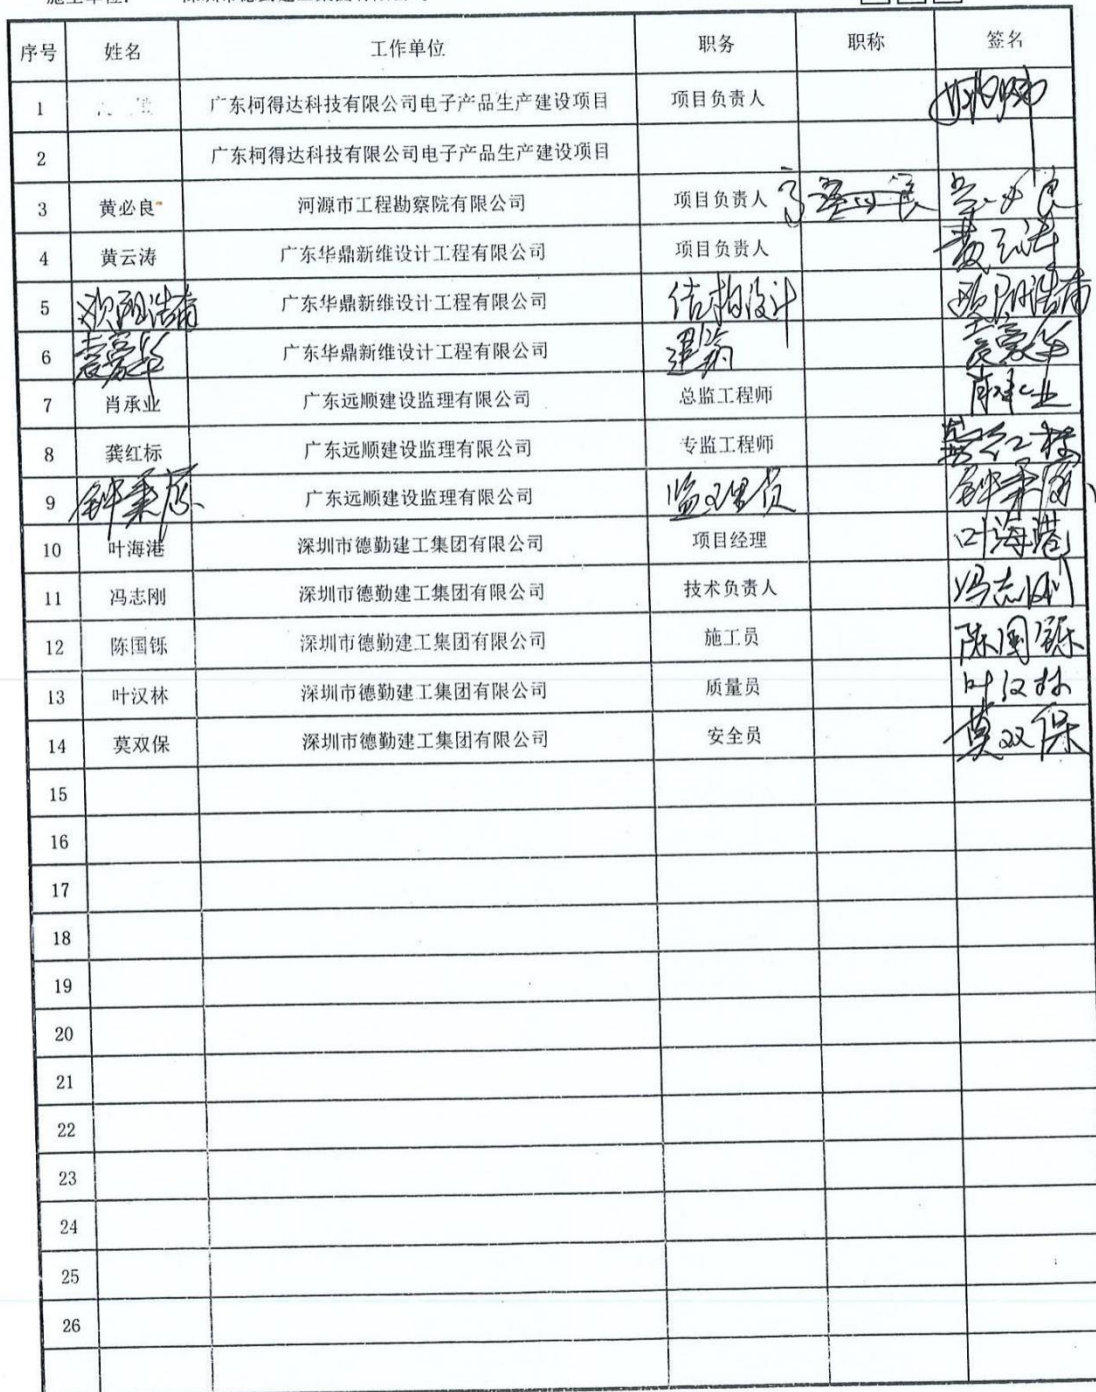 序号 姓名 工作单位 职务 职称 签名
1 广东柯得达科技有限公司电子产品生产建设项目 项目负责人
2 广东柯得达科技有限公司电子产品生产建设项目
3 黄必良 河源市工程勘察院有限公司 项目负责人
4 黄云涛 广东华鼎新维设计工程有限公司 项目负责人 黄云涛
5 欧阳浩南 广东华鼎新维设计工程有限公司 结构设计 欧阳浩南
6 广东华鼎新维设计工程有限公司
7 肖承业 广东远顺建设监理有限公司 总监工程师 肖承业
8 龚红标 广东远顺建设监理有限公司 专监工程师 龚红标
9 广东远顺建设监理有限公司 监理员
10 叶海港 深圳市德勤建工集团有限公司 项目经理 叶海港
11 冯志刚 深圳市德勤建工集团有限公司 技术负责人 冯志刚
12 陈国铄 深圳市德勤建工集团有限公司 施工员 陈国铄
13 叶汉林 深圳市德勤建工集团有限公司 质量员 叶汉林
14 莫双保 深圳市德勤建工集团有限公司 安全员 莫双保
15
16
17
18
19
20
21
22
23
24
25
26